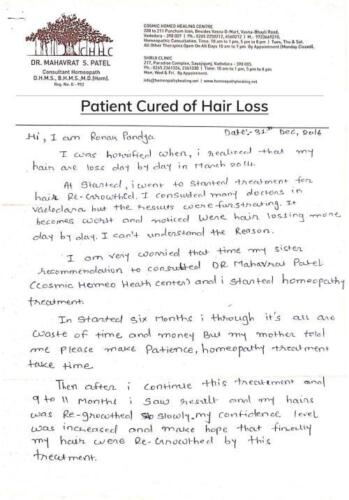 CHHC
DR. MAHAVRAT S. PATEL
Consultant Homeopath
D.H.M.S., B.H.M.S.,M.D.(Hom).
Reg. No. G - 992
COSMIC HOMEO HEALING CENTRE
Homeopathic Consultation. Time: 10 am to 1 pm, 5 pm to 8 pm | Tue, Thu & Sat.
All Other Therapies Open On All Days 10 am to 7 pm By Appointment (Monday Closed).
SHIRDI CLINIC
Mon, Wed & Fri. By Appointment.
info@homeopathyhealing.net | www.homeopathyhealing.net
Patient Cured of Hair Loss
Hi, I am Ronak Pandya
Date:- 31st Dec, 2016
I was horrified when, i realized that my
hair are loss day by day in March 2014.
At Started, i went to started treatment for
hair Re-Growthed. I consulted many doctors in
Vadodara but the results were furstrating. It
becomes worst and noticed were hair lossing more
day by day. I can't understand the Reason.
I am very worried that time my sister
recommendation to consulted DR Mahavrat Patel
(Cosmic Homeo Heath center) and i started homeopathy
treatment.
In Started six Months i through it's all are
waste of time and money But my mother told
me Please make Patience, homeopathy treatment
take time.
Then after i continue this treatement and
9 to 11 Months i saw result and my hairs
was Re-growthed slowly. my confidence level
was increased and make hope that finally
my hair were Re-Growthed by this
treatment.